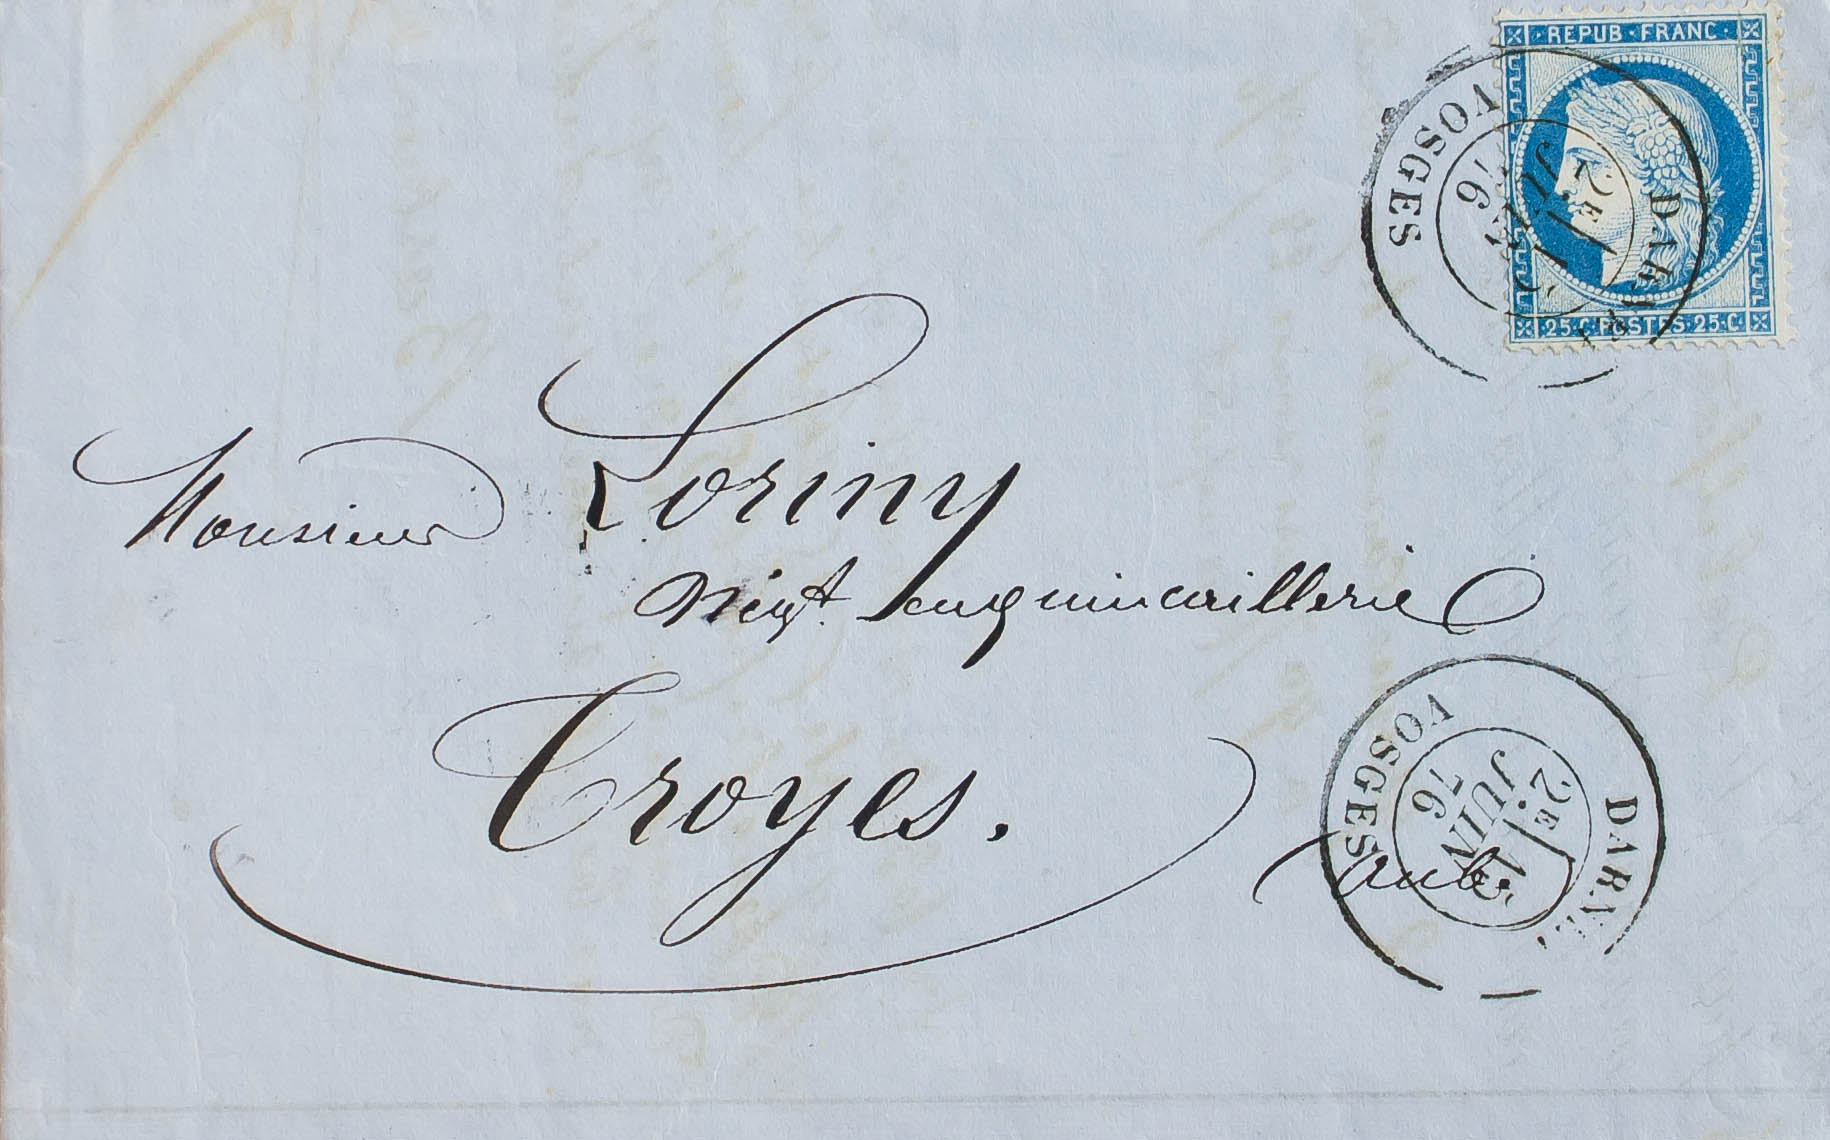 REPUB · FRANC ·
25 · C · POSTES · 25 · C
VOSGES
2E
76
Monsieur Loriny
Négt. en quincaillerie
Troyes.
Aube
VOSGES
DARNEY
2E
15
JUIN
76